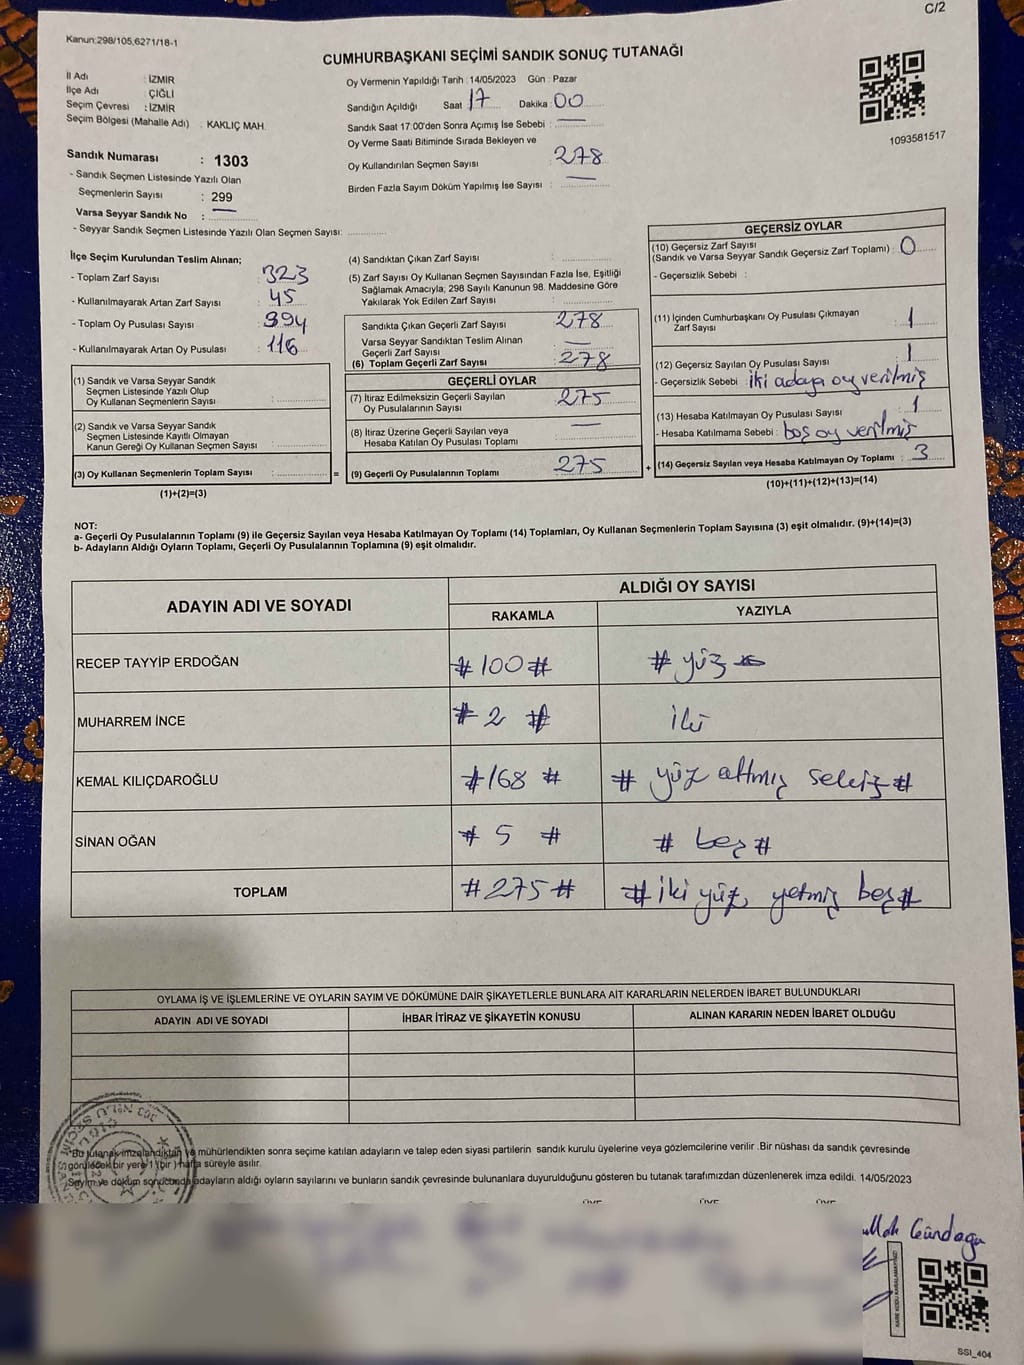 C/2
Kanun:298/105,6271/18-1
CUMHURBAŞKANI SEÇİMİ SANDIK SONUÇ TUTANAĞI
İl Adı : İZMİR
İlçe Adı : ÇİĞLİ
Seçim Çevresi : İZMİR
Seçim Bölgesi (Mahalle Adı) : KAKLIÇ MAH.
Sandık Numarası : 1303
- Sandık Seçmen Listesinde Yazılı Olan
Seçmenlerin Sayısı : 299
Varsa Seyyar Sandık No : —
- Seyyar Sandık Seçmen Listesinde Yazılı Olan Seçmen Sayısı:
Oy Vermenin Yapıldığı Tarih :14/05/2023 Gün : Pazar
Sandığın Açıldığı Saat 17 Dakika: 00
Sandık Saat 17:00'den Sonra Açımış İse Sebebi : —
Oy Verme Saati Bitiminde Sırada Bekleyen ve
Oy Kullandırılan Seçmen Sayısı : 278
Birden Fazla Sayım Döküm Yapılmış İse Sayısı : —
1093581517
İlçe Seçim Kurulundan Teslim Alınan;
- Toplam Zarf Sayısı : 323
- Kullanılmayarak Artan Zarf Sayısı : 45
- Toplam Oy Pusulası Sayısı : 394
- Kullanılmayarak Artan Oy Pusulası : 116
(1) Sandık ve Varsa Seyyar Sandık
Seçmen Listesinde Yazılı Olup
Oy Kullanan Seçmenlerin Sayısı :
(2) Sandık ve Varsa Seyyar Sandık
Seçmen Listesinde Kayıtlı Olmayan
Kanun Gereği Oy Kullanan Seçmen Sayısı :
(3) Oy Kullanan Seçmenlerin Toplam Sayısı : =
(1)+(2)=(3)
(4) Sandıktan Çıkan Zarf Sayısı :
(5) Zarf Sayısı Oy Kullanan Seçmen Sayısından Fazla İse, Eşitliği
Sağlamak Amacıyla; 298 Sayılı Kanunun 98. Maddesine Göre
Yakılarak Yok Edilen Zarf Sayısı :
Sandıkta Çıkan Geçerli Zarf Sayısı : 278
Varsa Seyyar Sandıktan Teslim Alınan
Geçerli Zarf Sayısı : —
(6) Toplam Geçerli Zarf Sayısı : 278
GEÇERLİ OYLAR
(7) İtiraz Edilmeksizin Geçerli Sayılan
Oy Pusulalarının Sayısı : 275
(8) İtiraz Üzerine Geçerli Sayılan veya
Hesaba Katılan Oy Pusulası Toplamı : —
(9) Geçerli Oy Pusulalarının Toplamı : 275 +
GEÇERSİZ OYLAR
(10) Geçersiz Zarf Sayısı
(Sandık ve Varsa Seyyar Sandık Geçersiz Zarf Toplamı) : 0
- Geçersizlik Sebebi :
(11) İçinden Cumhurbaşkanı Oy Pusulası Çıkmayan
Zarf Sayısı : 1
(12) Geçersiz Sayılan Oy Pusulası Sayısı : 1
- Geçersizlik Sebebi : iki adaya oy verilmiş
(13) Hesaba Katılmayan Oy Pusulası Sayısı : 1
- Hesaba Katılmama Sebebi : boş oy verilmiş
(14) Geçersiz Sayılan veya Hesaba Katılmayan Oy Toplamı : 3
(10)+(11)+(12)+(13)=(14)
NOT:
a- Geçerli Oy Pusulalarının Toplamı (9) ile Geçersiz Sayılan veya Hesaba Katılmayan Oy Toplamı (14) Toplamları, Oy Kullanan Seçmenlerin Toplam Sayısına (3) eşit olmalıdır. (9)+(14)=(3)
b- Adayların Aldığı Oyların Toplamı, Geçerli Oy Pusulalarının Toplamına (9) eşit olmalıdır.
ADAYIN ADI VE SOYADI ALDIĞI OY SAYISI
RAKAMLA YAZIYLA
RECEP TAYYİP ERDOĞAN # 100 # # yüz #
MUHARREM İNCE # 2 # iki
KEMAL KILIÇDAROĞLU # 168 # # yüz altmış sekiz #
SİNAN OĞAN # 5 # # beş #
TOPLAM # 275 # # iki yüz yetmiş beş #
OYLAMA İŞ VE İŞLEMLERİNE VE OYLARIN SAYIM VE DÖKÜMÜNE DAİR ŞİKAYETLERLE BUNLARA AİT KARARLARIN NELERDEN İBARET BULUNDUKLARI
ADAYIN ADI VE SOYADI İHBAR İTİRAZ VE ŞİKAYETİN KONUSU ALINAN KARARIN NEDEN İBARET OLDUĞU
*Bu tutanak imzalandıktan ve mühürlendikten sonra seçime katılan adayların ve talep eden siyasi partilerin sandık kurulu üyelerine veya gözlemcilerine verilir. Bir nüshası da sandık çevresinde
görülecek bir yere 1 (bir) hafta süreyle asılır.
Sayım ve döküm sonucunda adayların aldığı oyların sayılarını ve bunların sandık çevresinde bulunanlara duyurulduğunu gösteren bu tutanak tarafımızdan düzenlenerek imza edildi. 14/05/2023
Gündağ
SSI_404